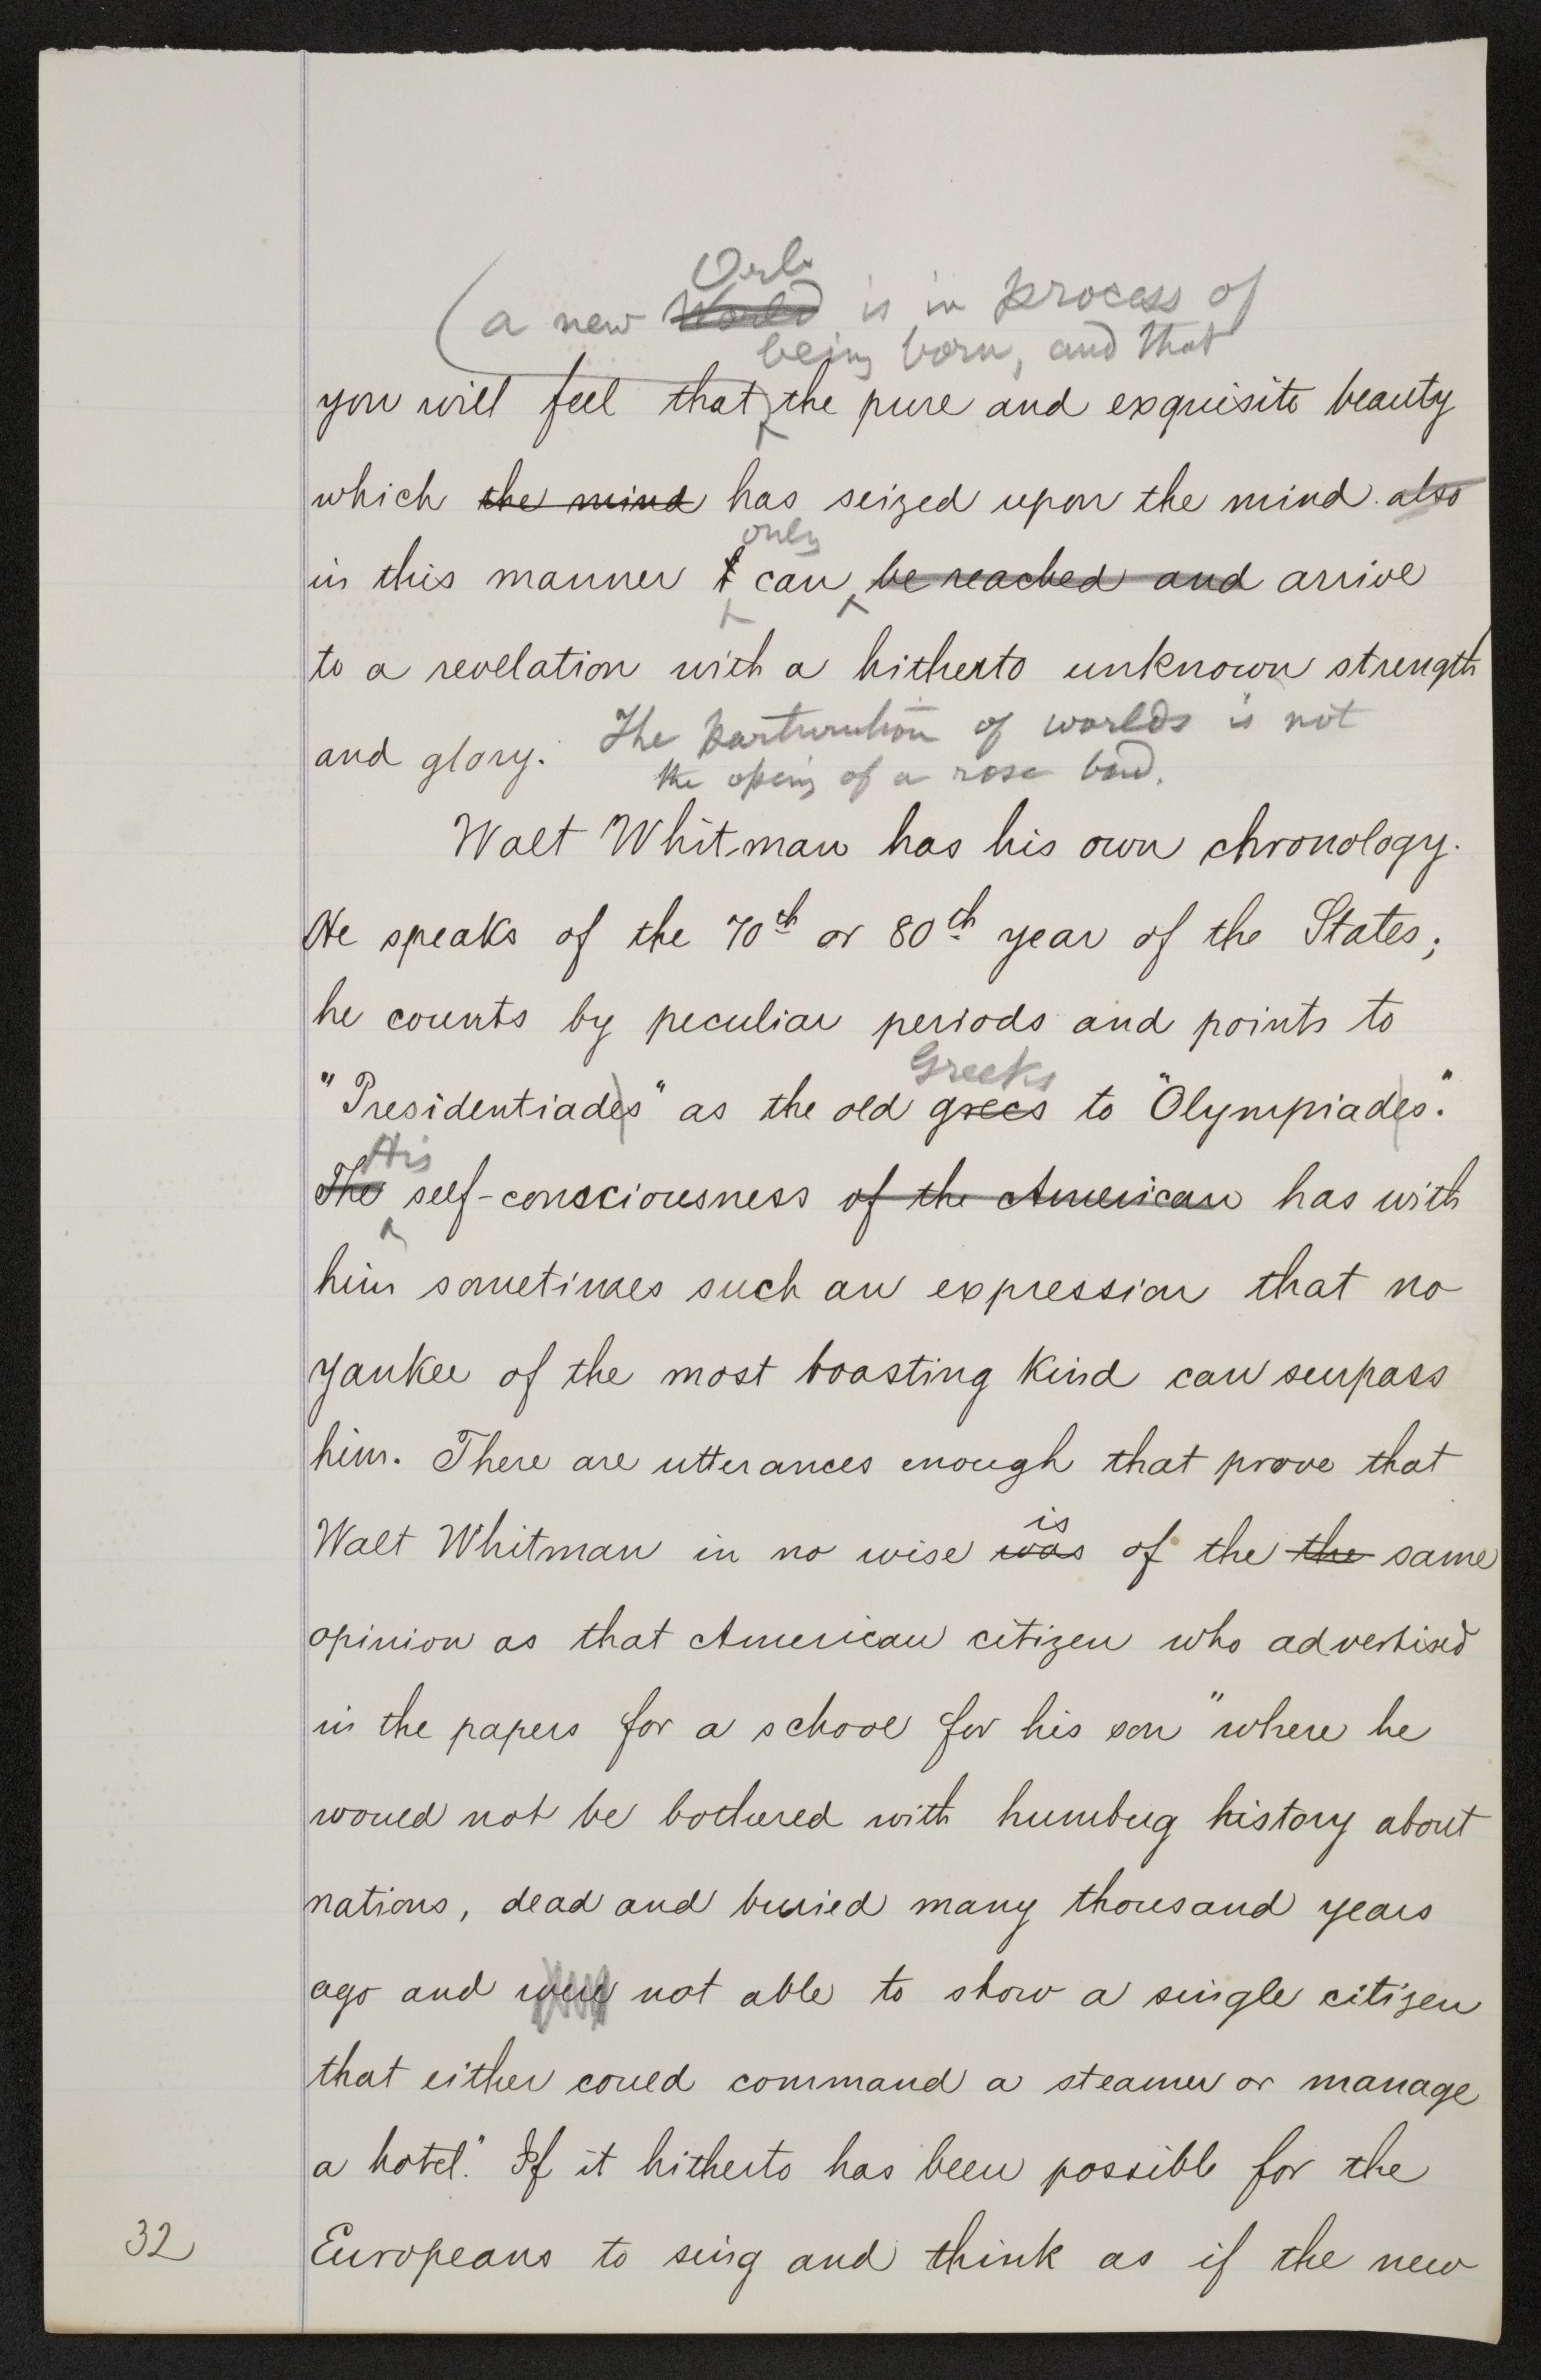 Orb
(a new World is in process of
being born, and that
you will feel that the pure and exquisite beauty
which the mind has seized upon the mind also
only
in this manner t can be reached and arrive
to a revelation with a hitherto unknown strength
and glory. The parturition of worlds is not
the opening of a rose bud.
Walt Whitman has his own chronology.
He speaks of the 70th or 80th year of the States;
he counts by peculiar periods and points to
Greeks
"Presidentiades" as the old grecs to "Olympiades."
His
The self-consciousness of the American has with
him sometimes such an expression that no
yankee of the most boasting kind can surpass
him. There are utterances enough that prove that
is
Walt Whitman in no wise was of the the same
opinion as that American citizen who advertised
in the papers for a school for his son "where he
would not be bothered with humbug history about
nations, dead and buried many thousand years
ago and were not able to show a single citizen
that either could command a steamer or manage
a hotel." If it hitherto has been possible for the
32 Europeans to sing and think as if the new